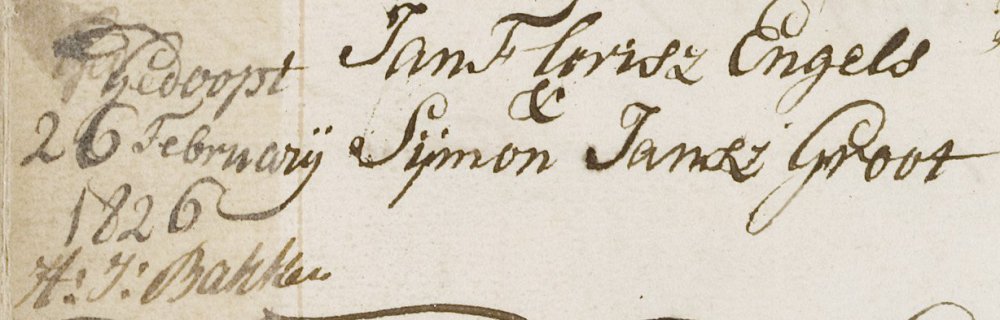 Gedoopt
26 Februarÿ
1826
H: J: Bakker
Jan Florisz Engels
&
Sÿmon Jansz Groot